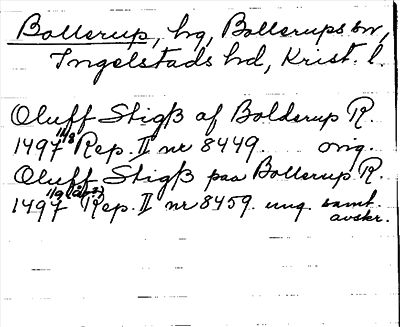 Bollerup, hg, Bollerups sn,
Ingelstads hd, Krist. l.
Oluff Stigß af Bolderup R.
1497 11/8 Rep. II nr 8449. orig.
Oluff Stigß paa Bollerup R.
1497 Rep. II nr 8459. ung. samt.
avskr.